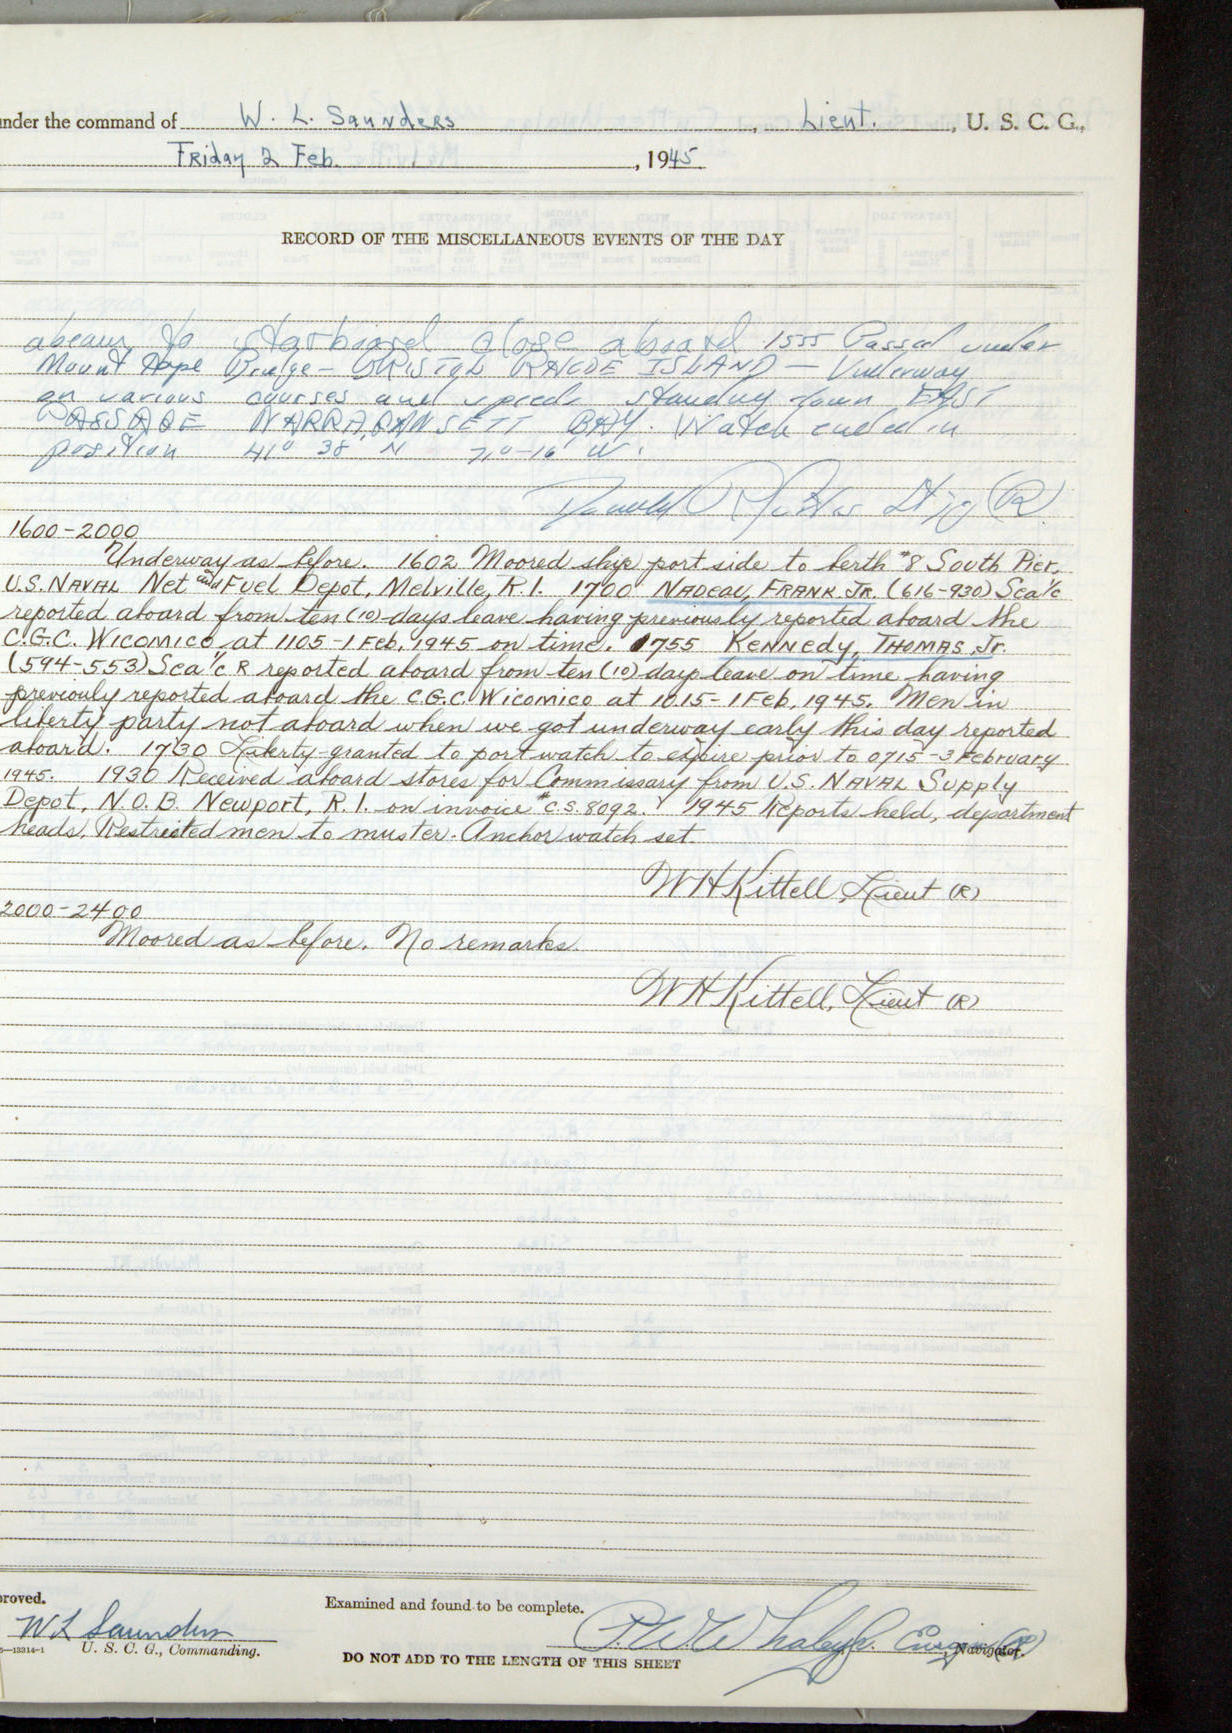 under the command of W. L. Saunders, Lieut., U. S. C. G.,
Friday 2 Feb., 1945
RECORD OF THE MISCELLANEOUS EVENTS OF THE DAY
abeam to starboard close aboard 1555 Passed under
Mount Hope Bridge - BRISTOL RHODE ISLAND - Underway
on various courses and speeds standing down EAST
PASSAGE NARRAGANSETT BAY. Watch ended in
position 41° 38' N 71°-16' W.
Lt jg (R)
1600-2000
Underway as before. 1602 Moored ship port side to berth #8 South Pier,
U.S. NAVAL Net and Fuel Depot, Melville, R.I. 1700 NADEAU, FRANK. JR. (616-930) Sea 1/c
reported aboard from ten (10) days leave having previously reported aboard the
C.G.C. WICOMICO at 1105-1 Feb, 1945 on time. 1755 KENNEDY, THOMAS, Jr.
(594-553) Sea 1/c R reported aboard from ten (10) day leave on time having
previouly reported aboard the C.G.C. Wicomico at 1015-1 Feb, 1945. Men in
liberty party not aboard when we got underway early this day reported
aboard. 1730 Liberty granted to port watch to expire prior to 0715-3 February
1945. 1930 Received aboard stores for Commissary from U.S. NAVAL Supply
Depot, N.O.B. Newport, R.I. on invoice #C.S. 8092. 1945 Reports held, department
heads, Restricted men to muster. Anchor watch set.
WH Kittell, Lieut (R)
2000-2400
Moored as before. No remarks.
WH Kittell, Lieut (R)
proved.
Examined and found to be complete.
WL Saunders
U. S. C. G., Commanding.
Ensign (R)
Navigator.
—13314-1
DO NOT ADD TO THE LENGTH OF THIS SHEET